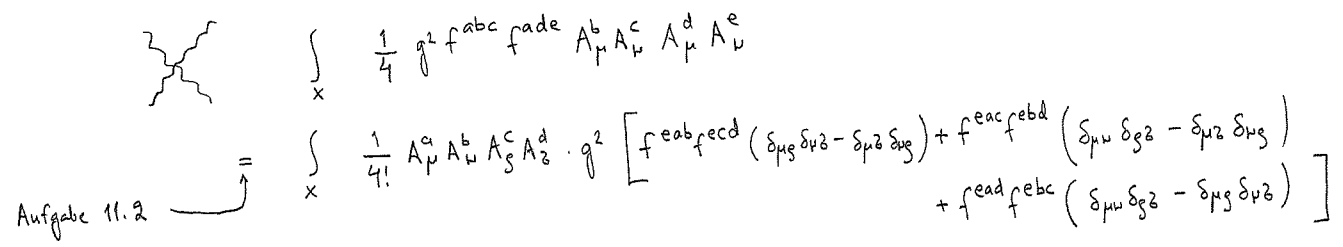 ∫_x 1/4 g² f^{abc} f^{ade} A^b_μ A^c_ν A^d_μ A^e_ν
= ∫_x 1/4! A^a_μ A^b_ν A^c_ρ A^d_σ · g² [ f^{eab} f^{ecd} (δ_{μρ} δ_{νσ} − δ_{μσ} δ_{νρ}) + f^{eac} f^{ebd} (δ_{μν} δ_{ρσ} − δ_{μσ} δ_{νρ})
+ f^{ead} f^{ebc} (δ_{μν} δ_{ρσ} − δ_{μρ} δ_{νσ}) ]
Aufgabe 11.2